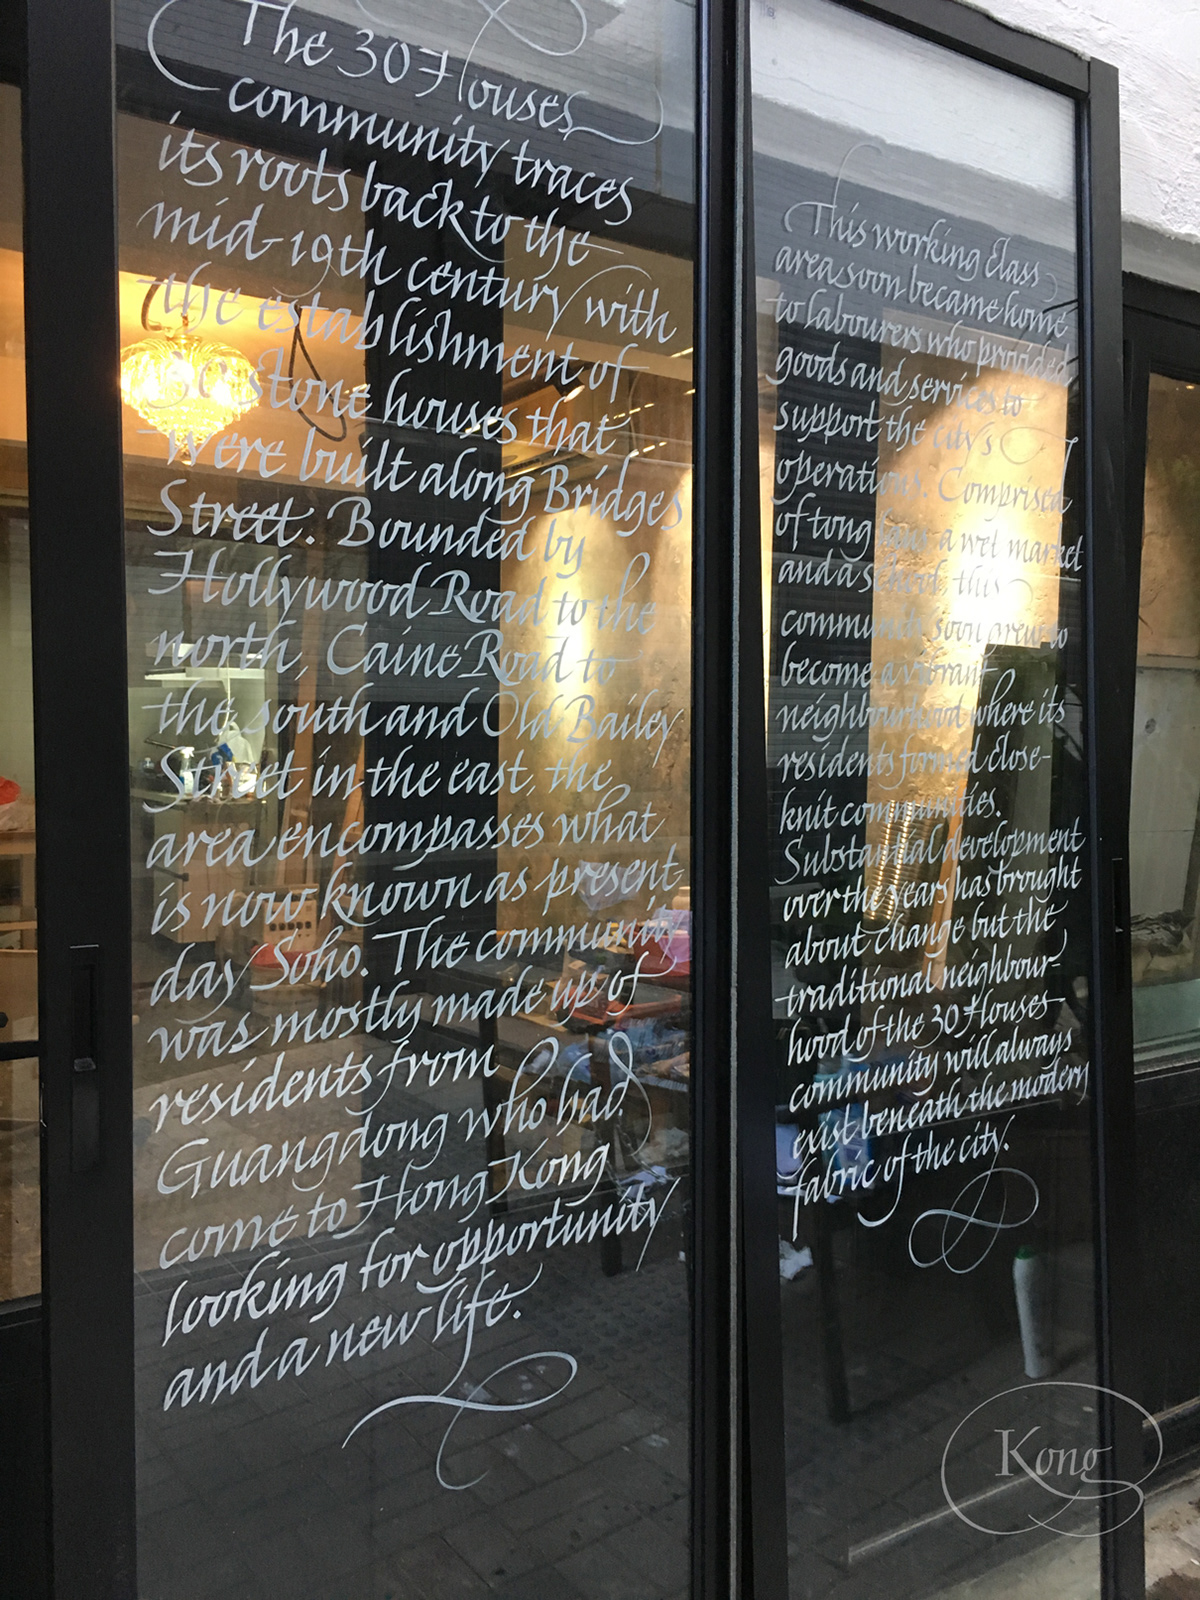 The 30 Houses
community traces
its roots back to the
mid-19th century with
the establishment of
30 stone houses that
were built along Bridges
Street. Bounded by
Hollywood Road to the
north, Caine Road to
the south and Old Bailey
Street in the east, the
area encompasses what
is now known as present
day Soho. The community
was mostly made up of
residents from
Guangdong who had
come to Hong Kong
looking for opportunity
and a new life.
This working class
area soon became home
to labourers who provided
goods and services to
support the city's
operations. Comprised
of tong laus, a wet market
and a school, this
community soon grew to
become a vibrant
neighbourhood where its
residents formed close-
knit communities.
Substantial development
over the years has brought
about change but the
traditional neighbour-
hood of the 30 Houses
community will always
exist beneath the modern
fabric of the city.
Kong